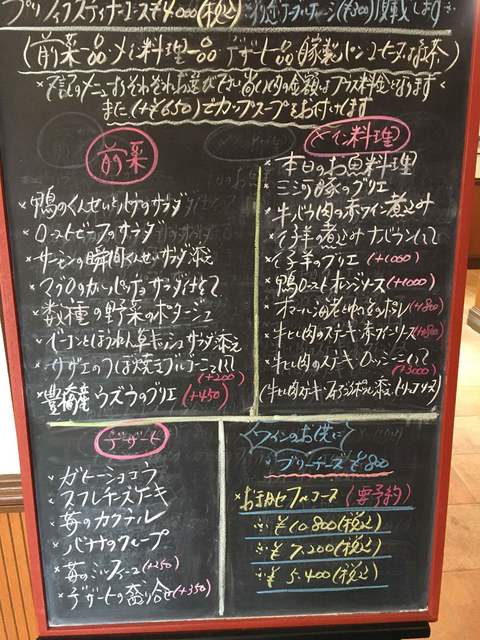 プリフィクスディナーコース¥4000(税込)
(前菜一品・メイン料理一品・デザート一品・自家製パン・コーヒー又は紅茶)
※下記のメニューよりそれぞれお選び下さい 尚()内の金額はプラス料金となります
また(+¥650)でカップスープをお付けします
前菜
×鴨のくんせいとハツのサラダ
×ローストビーフのサラダ
×サーモンの瞬間くんせいサラダ添え
×マグロのカルパッチョサラダ仕立て
×数種の野菜のポタージュ
×ベーコンとほうれん草キッシュサラダ添え
×サザエのつぼ焼きブルゴーニュ風(+200)
×豊橋産ウズラのグリエ(+450)
メイン料理
×本日のお魚料理
×三河豚のグリエ
×牛バラ肉の赤ワイン煮込み
×仔羊の煮込みナバラン仕立て
×仔羊のグリエ(+1000)
×鴨ローストオレンジソース(+1000)
×オマール海老とのポワレ(+1800)
×牛ヒレ肉のステーキ赤ワインソース
×牛ヒレ肉のステーキロッシーニ仕立て(+3000)
(牛ヒレ肉ステーキ・フォアグラポワレ添え・トリュフソース)
デザート
×ガトーショコラ
×スフレチーズケーキ
×苺のカクテル
×バナナのクレープ
×苺のミルフィーユ(+250)
×デザートの盛り合せ(+350)
ワインのお供に
×ブリーチーズ¥800
×おまかせフルコース(要予約)
¥10.800(税込)
¥7.200(税込)
¥5.400(税込)